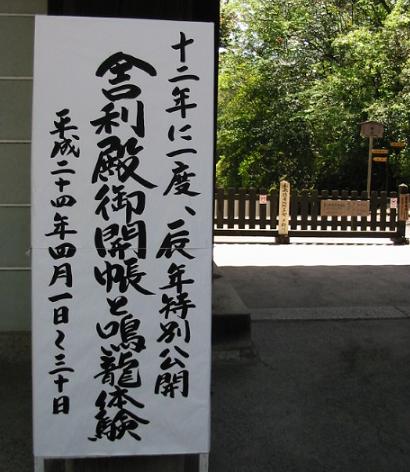 十二年に一度、辰年特別公開
舎利殿御開帳と鳴龍体験
平成二十四年四月一日～三十日